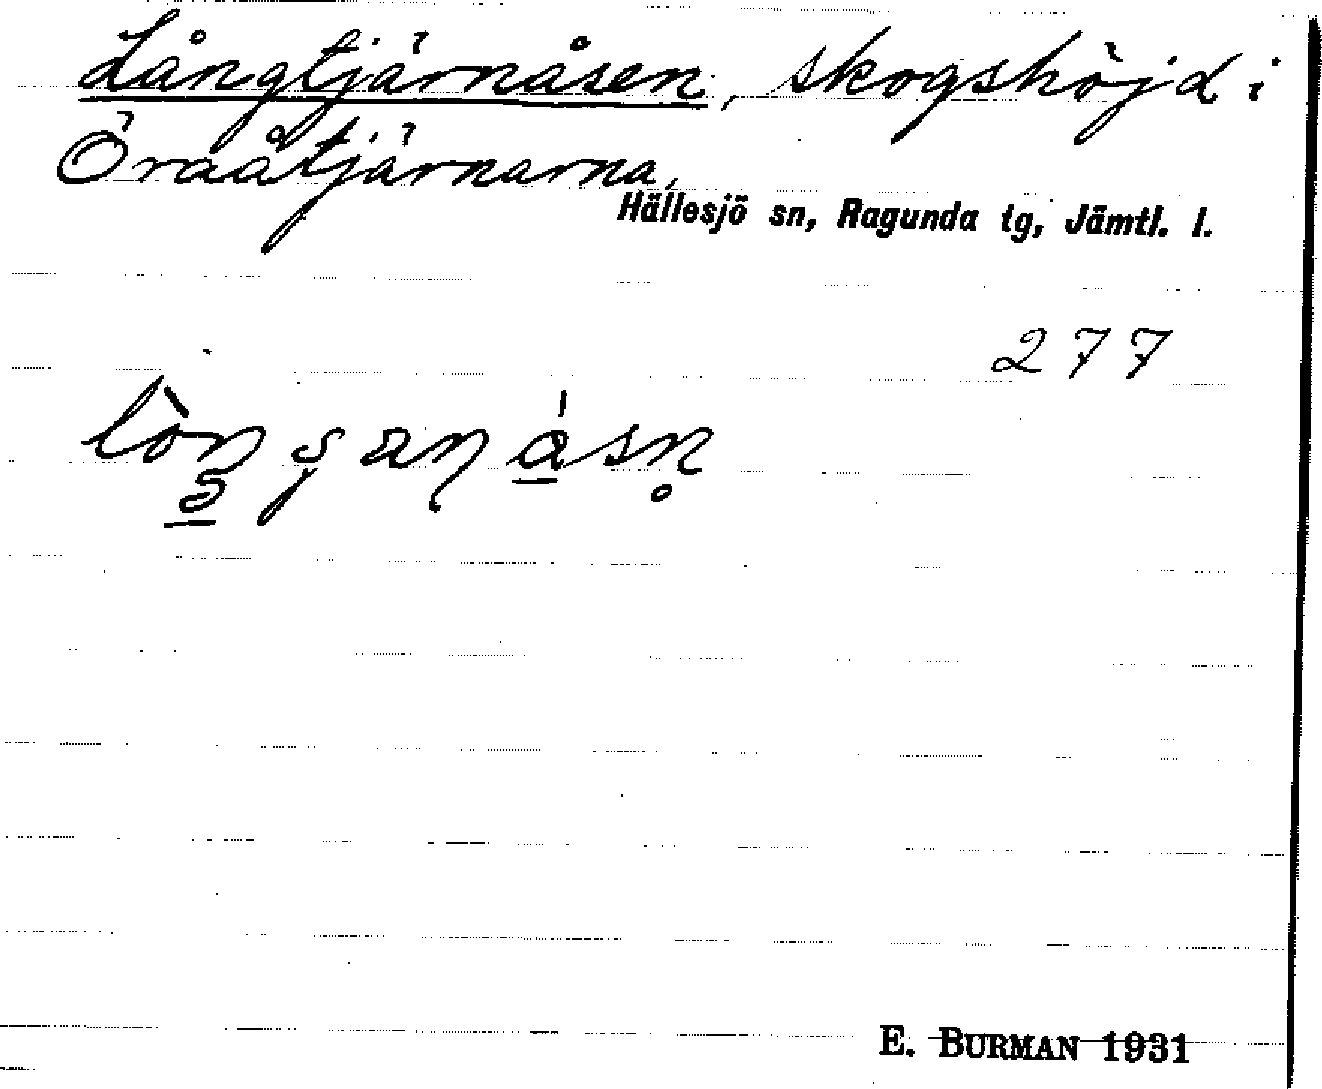 Långtjärnåsen, skogshöjd i
Öraåtjärnarna,
Hällesjö sn, Ragunda tg, Jämtl. l.
277
E. BURMAN 1931